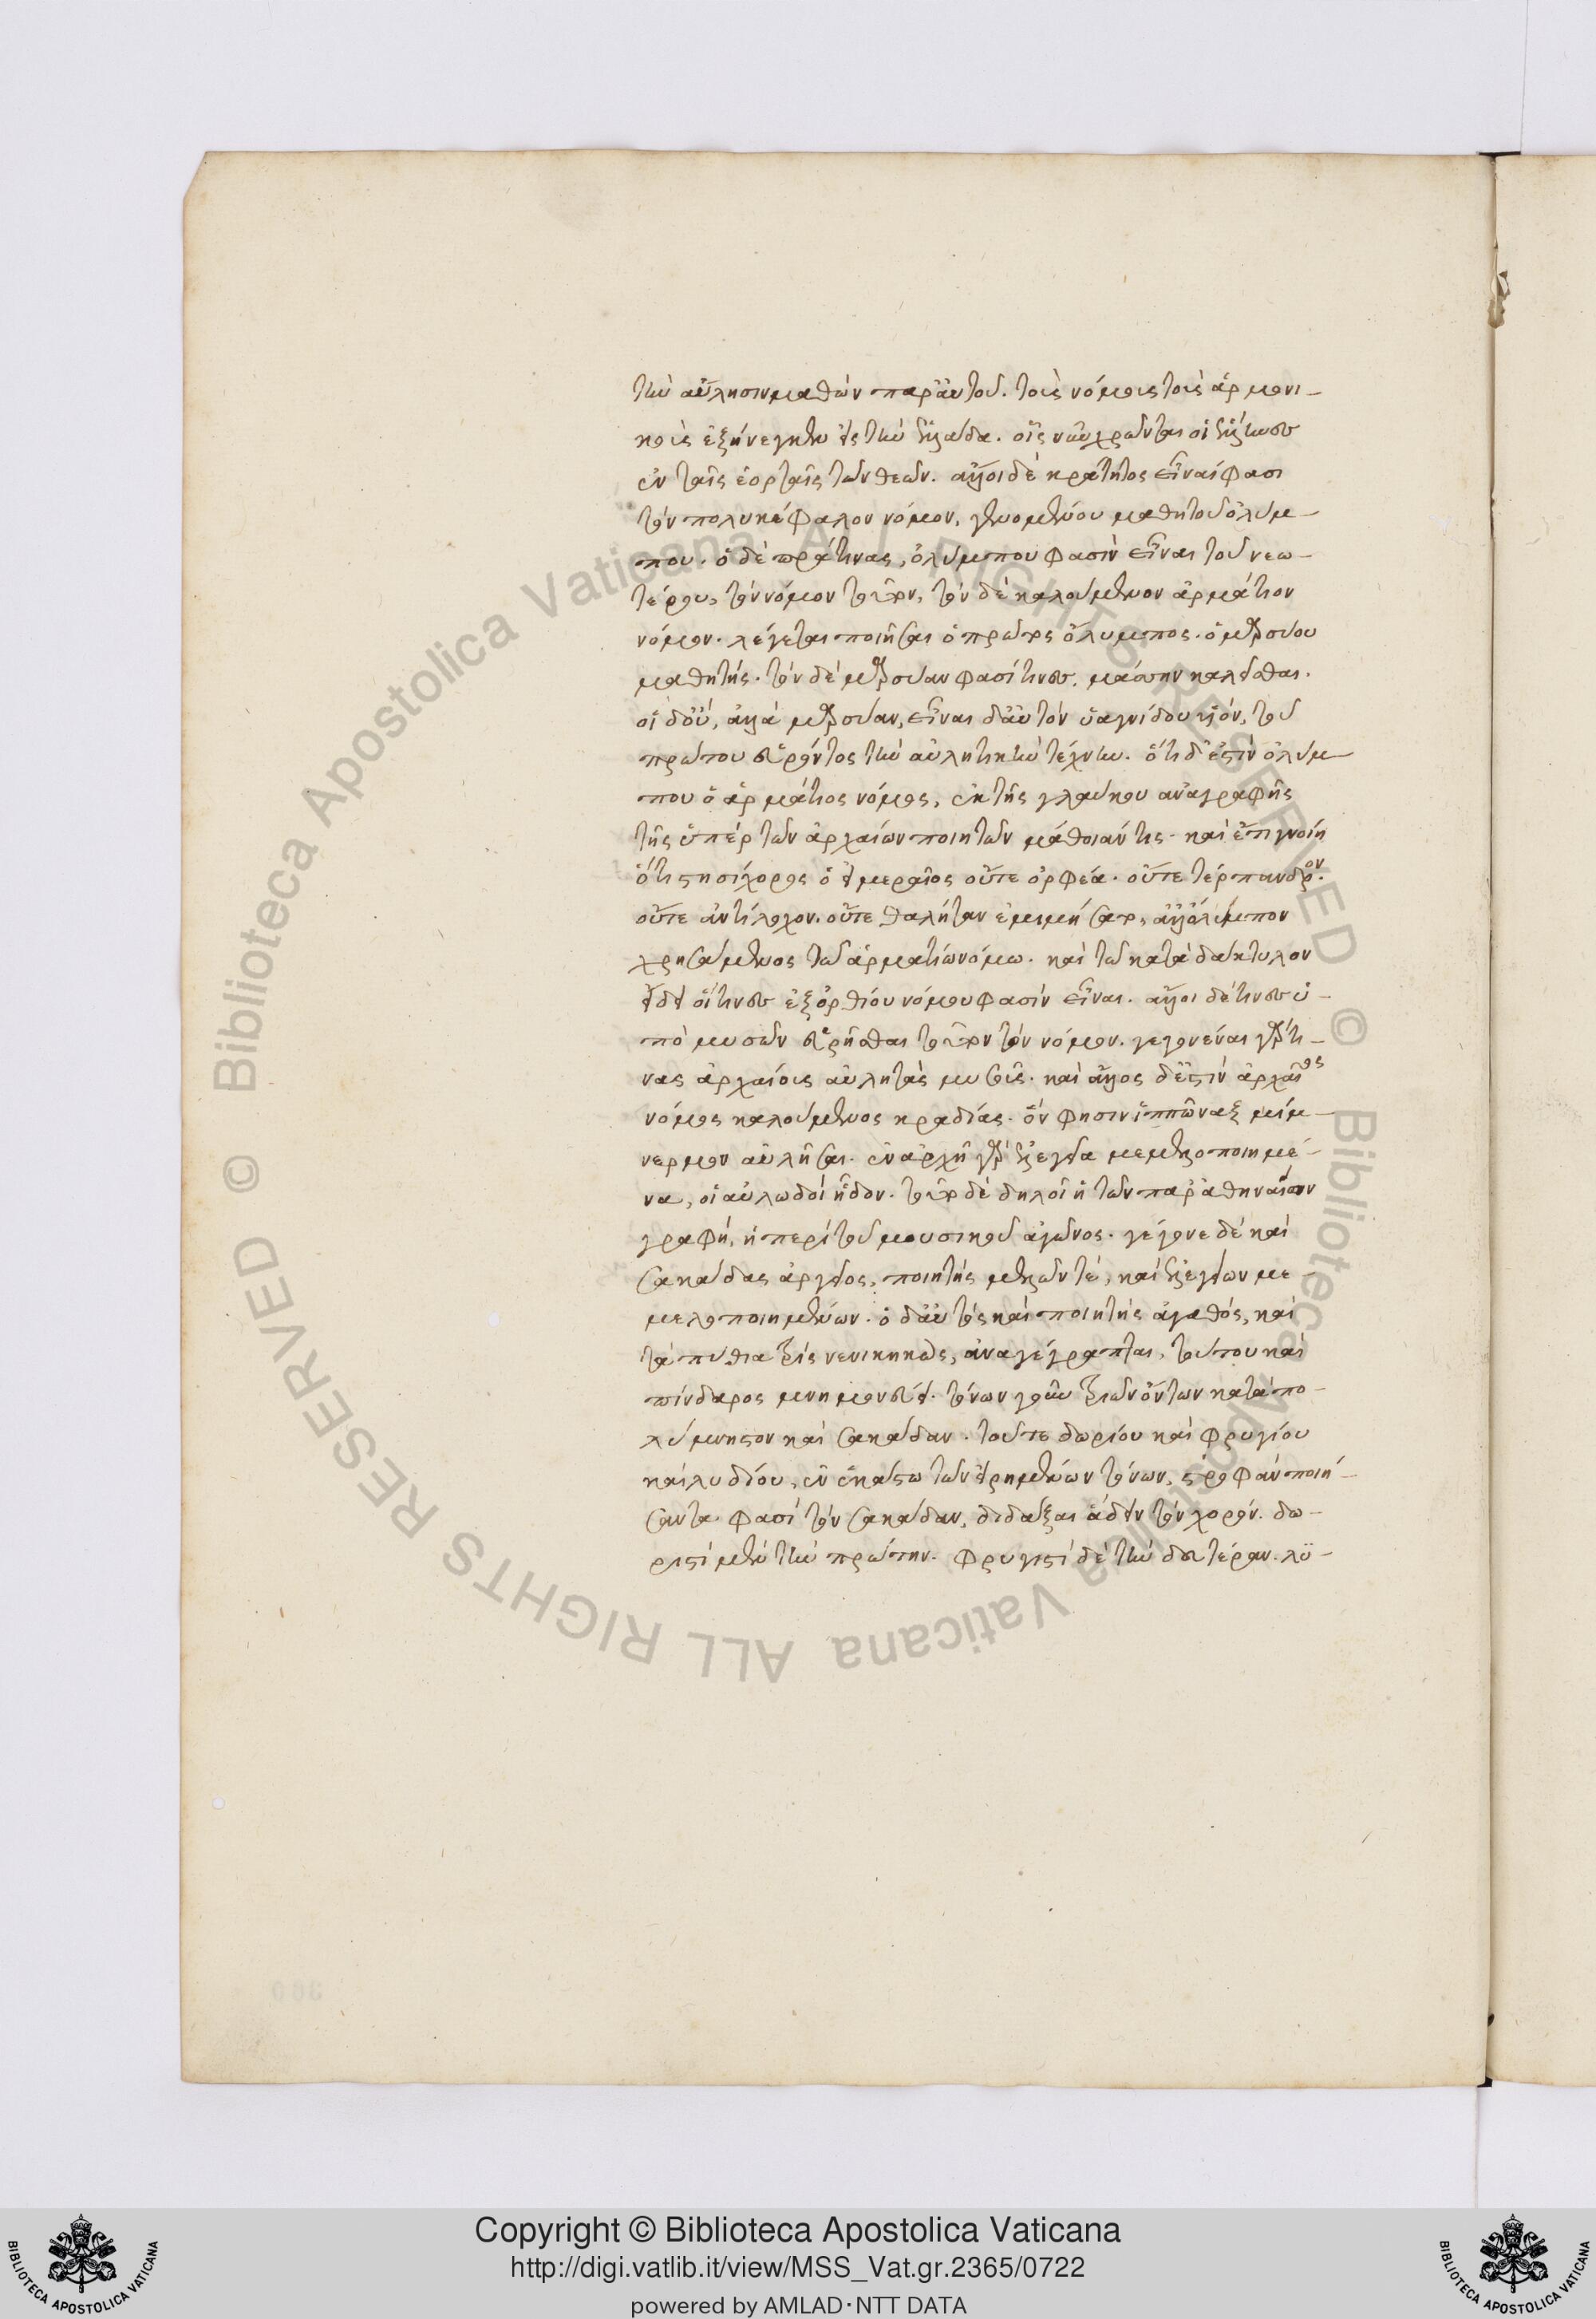 τὴν αὔλησιν μαθὼν παρ' αὐτοῦ. τοὺς νόμους τοὺς ἁρμονι-
κοὺς ἐξήνεγκεν εἰς τὴν ἑλλάδα. οἷς νῦν χρῶνται οἱ ἕλληνες
ἐν ταῖς ἑορταῖς τῶν θεῶν. ἄλλοι δὲ κράτητος εἶναί φασι
τὸν πολυκέφαλον νόμον, γενομένου μαθητοῦ ὀλύμ-
που. ὁ δὲ πρατίνας, ὀλύμπου φασὶν εἶναι τοῦ νεω-
τέρου, τὸν νόμον τοῦτον, τὸν δὲ καλούμενον ἁρμάτιον
νόμον. λέγεται ποιῆσαι ὁ πρῶτος ὄλυμπος. ὁ μαρσύου
μαθητής. τὸν δὲ μαρσύαν φασί τινες. μάσσην καλεῖσθαι.
οἱ δ' οὔ, ἀλλὰ μαρσύαν, εἶναι δ' αὐτὸν ὑάγνιδος υἱόν, τοῦ
πρώτου εὑρόντος τὴν αὐλητικὴν τέχνην. ὅτι δ' ἐστὶν ὀλύμ-
που ὁ ἁρμάτιος νόμος, ἐκ τῆς γλαύκου ἀναγραφῆς
τῆς ὑπὲρ τῶν ἀρχαίων ποιητῶν μάθοι ἄν τις. καὶ ἔτι γνοίη
ὅτι στησίχορος ὁ ἱμεραῖος οὔτε ὀρφέα. οὔτε τέρπανδρον.
οὔτε ἀντίλοχον. οὔτε θαλήταν ἐμιμήσατο, ἀλλ' ὄλυμπον
χρησάμενος τῷ ἁρματίῳ νόμῳ. καὶ τῷ κατὰ δάκτυλον
εἴδει ὅ τινες ἐξ ὀρθίου νόμου φασὶν εἶναι. ἄλλοι δέ τινες ὑ-
πὸ μυσῶν εὑρῆσθαι τοῦτον τὸν νόμον. γεγονέναι γάρ τι-
νας ἀρχαίους αὐλητὰς μυσούς. καὶ ἄλλος δ' ἐστὶν ἀρχαῖος
νόμος καλούμενος κραδίας. ὅν φησιν ἱππῶναξ μίμ-
νερμον αὐλῆσαι. ἐν ἀρχῇ γὰρ ἐλεγεῖα μεμελοποιημέ-
να, οἱ αὐλῳδοὶ ᾖδον. τοῦτο δὲ δηλοῖ ἡ τῶν παρ' ἀθηναίων
γραφή, ἡ περὶ τοῦ μουσικοῦ ἀγῶνος. γέγονε δὲ καὶ
σακάδας ἀργεῖος, ποιητὴς μελῶν τέ, καὶ ἐλεγείων με-
μελοποιημένων. ὁ δ' αὐτὸς καὶ ποιητὴς ἀγαθός, καὶ
τὰ πύθια τρὶς νενικηκὼς, ἀναγέγραπται, τούτου καὶ
πίνδαρος μνημονεύει. τόνων γοῦν τριῶν ὄντων κατὰ πο-
λύμνηστον καὶ σακάδαν. τοῦ τε δωρίου καὶ φρυγίου
καὶ λυδίου, ἐν ἑκάστῳ τῶν εἰρημένων τόνων, στροφὰν ποιή-
σαντα φασὶ τὸν σακάδαν, διδάξαι ᾄδειν τὸν χορόν. δω-
ριστὶ μὲν τὴν πρώτην. φρυγιστὶ δὲ τὴν δευτέραν. λυ-
Copyright © Biblioteca Apostolica Vaticana
http://digi.vatlib.it/view/MSS_Vat.gr.2365/0722
powered by AMLAD·NTT DATA